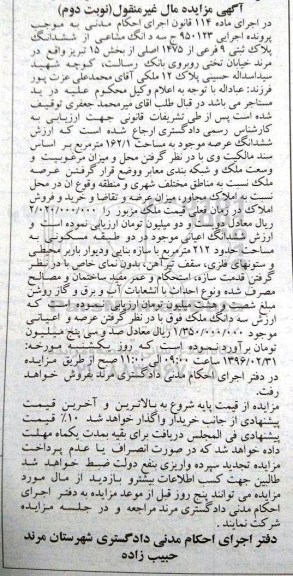 آگهی مزایده مال غیرمنقول(نوبت دوم)
در اجرای ماده ۱۱۴ قانون اجرای احکام مدنی به موجب
پرونده اجرایی ۹۵۰۱۲۳ ج سه دانگ مشاعی از ششدانگ
پلاک ثبتی ۹ فرعی از ۱۴۷۵ اصلی از بخش ۱۵ تبریز واقع در
مرند خیابان تختی روبروی بانک رسالت، کوچه شهید
سیداسداله حسینی پلاک ۱۲ ملکی آقای محمدعلی عزت پور
فرزند: عباداله با توجه به اعلام وکیل محکوم علیه در ید
مستاجر می باشد در قبال طلب اقای میرمحمد جعفری توقیف
شده است پس از طی تشریفات قانونی جهت ارزیابی به
کارشناس رسمی دادگستری ارجاع شده است که ارزش
ششدانگ عرصه موجود به مساحت ۱۶۲/۱ مترمربع بر اساس
سند مالکیت وی با در نظر گرفتن محل و میزان مرغوبیت و
وسعت ملک و شبکه بندی معابر ووضع قرار گرفتن عرصه
ملک نسبت به مناطق مختلف شهری و منطقه وقوع ان در محل
نسبت به املاک مجاور، میزان عرضه و تقاضا و خرید و فروش
املاک در زمان فعلی قیمت ملک مزبور را ۲/۰۲۰/۰۰۰/۰۰۰
ریال معادل دویست و دو میلیون تومان ارزیابی نموده است و
ارزش ششدانگ اعیانی موجود در دو طبقه مسکونی به
مساحت حدود ۲۱۲ مترمربع با سازه بنایی ودیوار باربر محیطی
و ستونهای فلزی، سقف تیرآهن، بدون نمای خاص با در نظر
گرفتن قدمت سازه، استحکام و عمر مفید ساختمان و مصالح
مصرف شده ونوع احداث با انشعابات آب و برق و گاز روشن
مبلغ شصت و هشت میلیون تومان ارزیابی نموده است که
ارزش سه دانگ ملک فوق با در نظر گرفتن عرصه و اعیانی
موجود ۱/۳۵۰/۰۰۰/۰۰۰ ریال معادل صد و سی پنج میلیون
تومان برآورد نموده است که روز یکشنبه مورخه:
۱۳۹۶/۰۲/۳۱ ساعت ۰۹:۰۰ الی ۱۱:۰۰ صبح از طریق مزایده
در دفتر اجرای احکام مدنی دادگستری مرند بفروش خواهد
رفت.
مزایده از قیمت پایه شروع به بالاترین و آخرین قیمت
پیشنهادی از جانب خریدار واگذار خواهد شد ۱۰٪ قیمت
پیشنهادی فی المجلس دریافت برای بقیه بمدت یکماه مهلت
داده خواهد شد که در صورت انصراف یا عدم پرداخت
مزایده تجدید سپرده واریزی بنفع دولت ضبط خواهد شد
طالبین جهت کسب اطلاعات بیشتر و بازدید از مال مورد
مزایده می توانند پنج روز قبل از موعد مزایده به دفتر اجرای
احکام مدنی دادگستری مرند مراجعه و در جلسه مزایده
شرکت نمایند.
دفتر اجرای احکام مدنی دادگستری شهرستان مرند
حبیب زاده